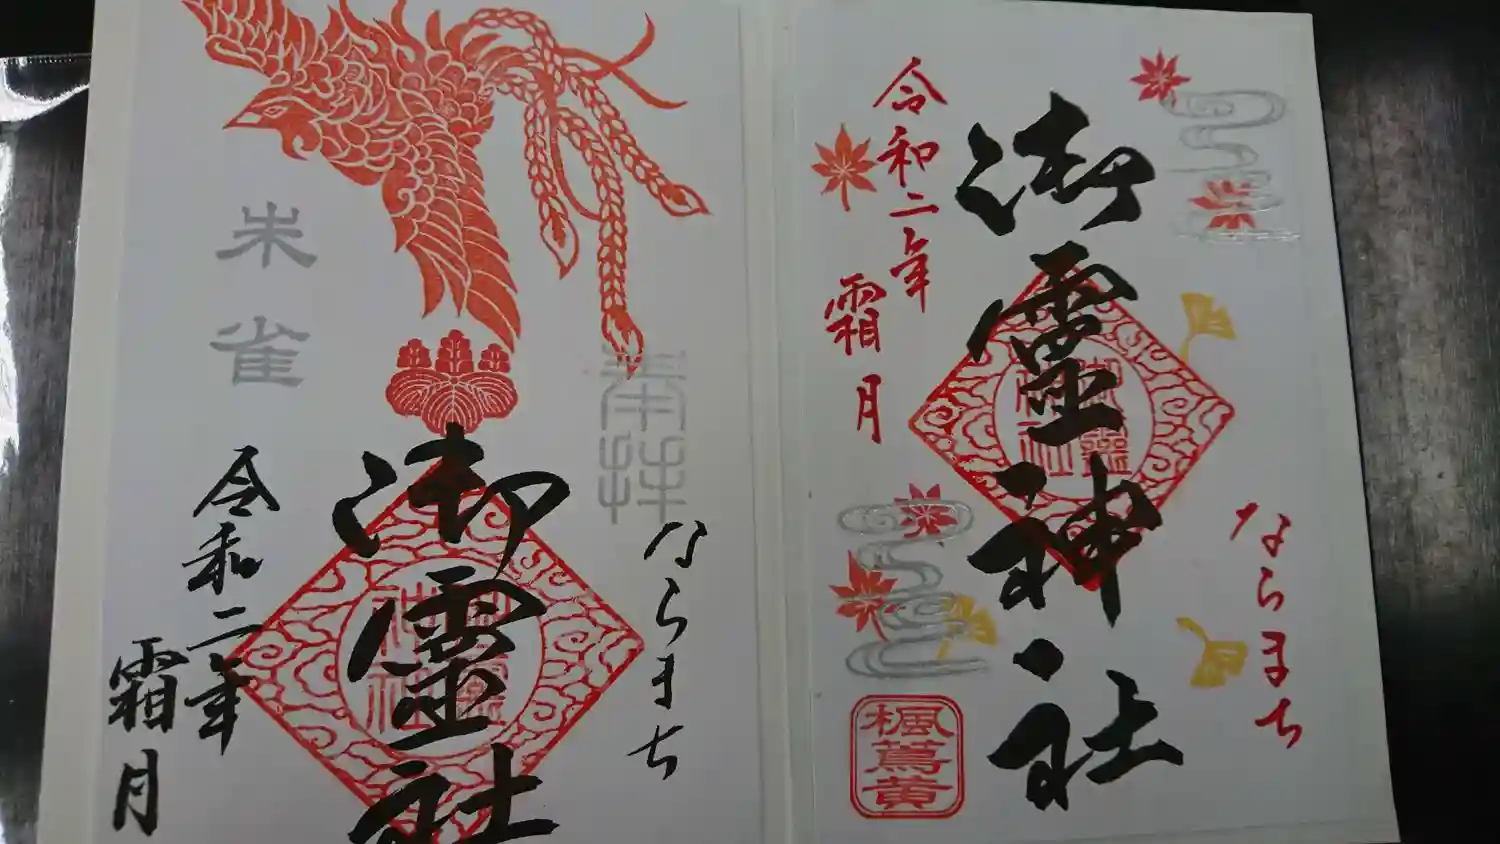 ならまち
御霊神社
令和二年
霜月
楓蔦黄
奉拝
ならまち
御霊社
朱雀
令和二年
霜月